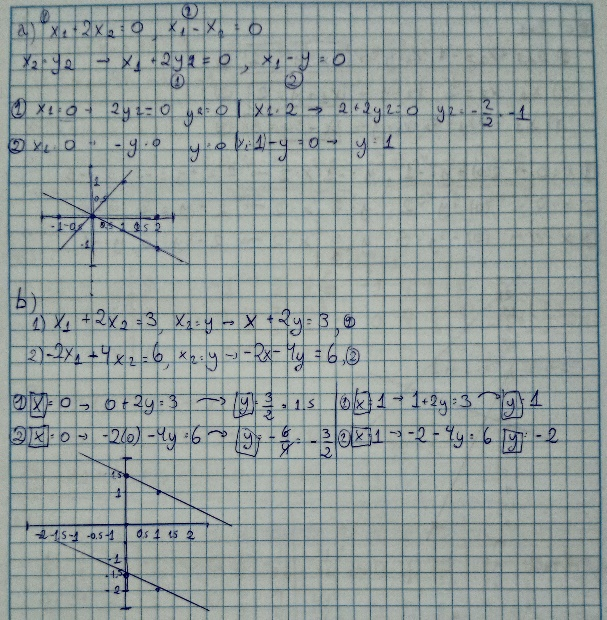 ① ②
a) x₁+2x₂=0, x₁-x₂=0
x₂=y₂ → x₁+2y₂=0, x₁-y=0
① ②
① x₁=0 → 2y₂=0 y₂=0 | x₁=2 → 2+2y₂=0 y₂=-2/2=-1
② x₁=0 → -y=0 y=0 |x=1|-y=0 → y=1
1
0.5
-1 -0.5 0.5 1 1.5 2
-1
b)
1) x₁+2x₂=3, x₂=y → x+2y=3, ①
2) -2x₁+4x₂=6, x₂=y → -2x-4y=6, ②
① x=0 → 0+2y=3 → y=3/2=1.5 | ① x=1 → 1+2y=3 → y=1
② x=0 → -2(0)-4y=6 → y=-6/4=-3/2 ② x=1 → -2-4y=6 y=-2
1.5
1
-2 -1.5 -1 -0.5 -1 0.5 1 1.5 2
-1
-1.5
-2